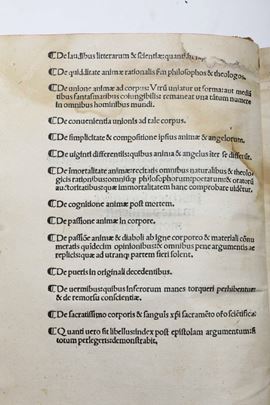 ¶De laudibus litterarum & scientiæ:quantum
¶De quidditate animæ rationalis sm philosophos & theologos.
¶De unione animæ ad corpus: Vtrū uniatur ut forma:aut medi
tibus fantasmatibus coiungibilis: remaneat una tātum numero
in omnibus hominibus mundi.
¶De conuenientia unionis ad tale corpus.
¶De simplicitate & compositione ipsius animæ & angelorum.
¶De uiginti differentiis:quibus anima & angelus iter se differūt.
¶De imortalitate animæ:recitatis omnibus naturalibus & theolo
gicis rationibus:omnisque philosophorum:poetarum:& oratorū
auctoritatibus:quæ immortalitatem hanc comprobare uidētur.
¶De cognitione animæ post mortem.
¶De passione animæ in corpore.
¶De passiōe animæ & diaboli ab igne corporeo & materiali cōnu
meratis quidecim opinionibus:& omnibus pene argumentis ae
replicis:quæ ad utranque partem fieri solent.
¶De pueris in originali decedentibus.
¶De uermibus:quibus inferorum manes torqueri perhibentur
& de remorsu conscientiæ.
¶De sacratissimo corporis & sanguīs xpi sacramēto
¶Quanti uero sit libellus:index post epistolam argumentum:si
totum perlegeris:demonstrabit.